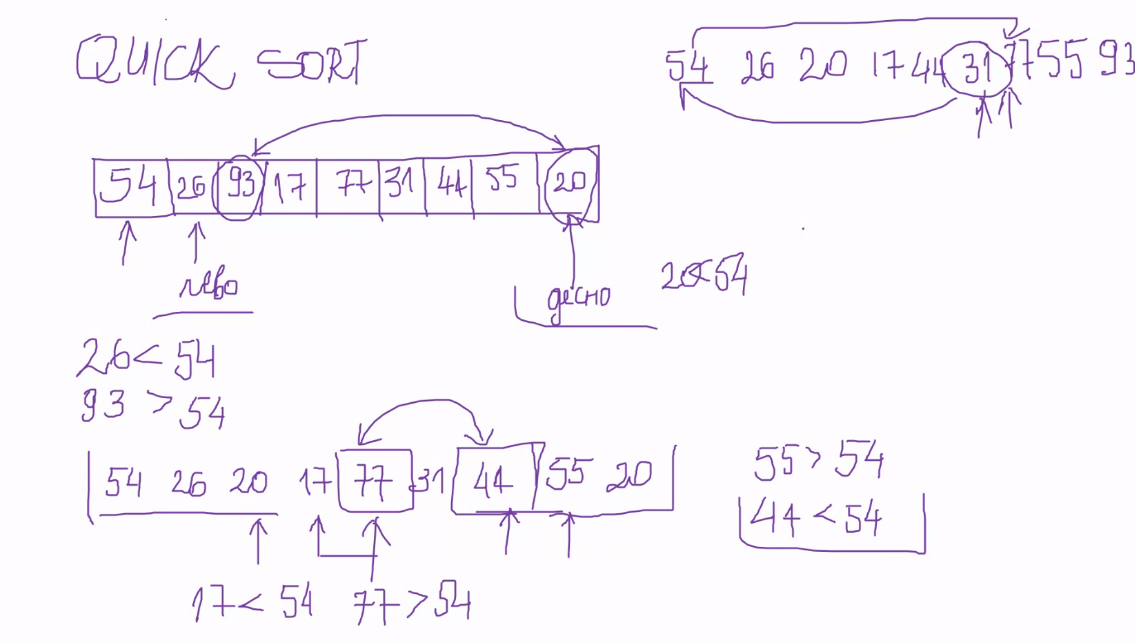 QUICK SORT
54 26 20 17 44 31 77 55 93
54 26 93 17 77 31 44 55 20
лево
десно
20<54
26< 54
93 > 54
54 26 20 17 77 31 44 55 20
55> 54
44 < 54
17 < 54
77 > 54